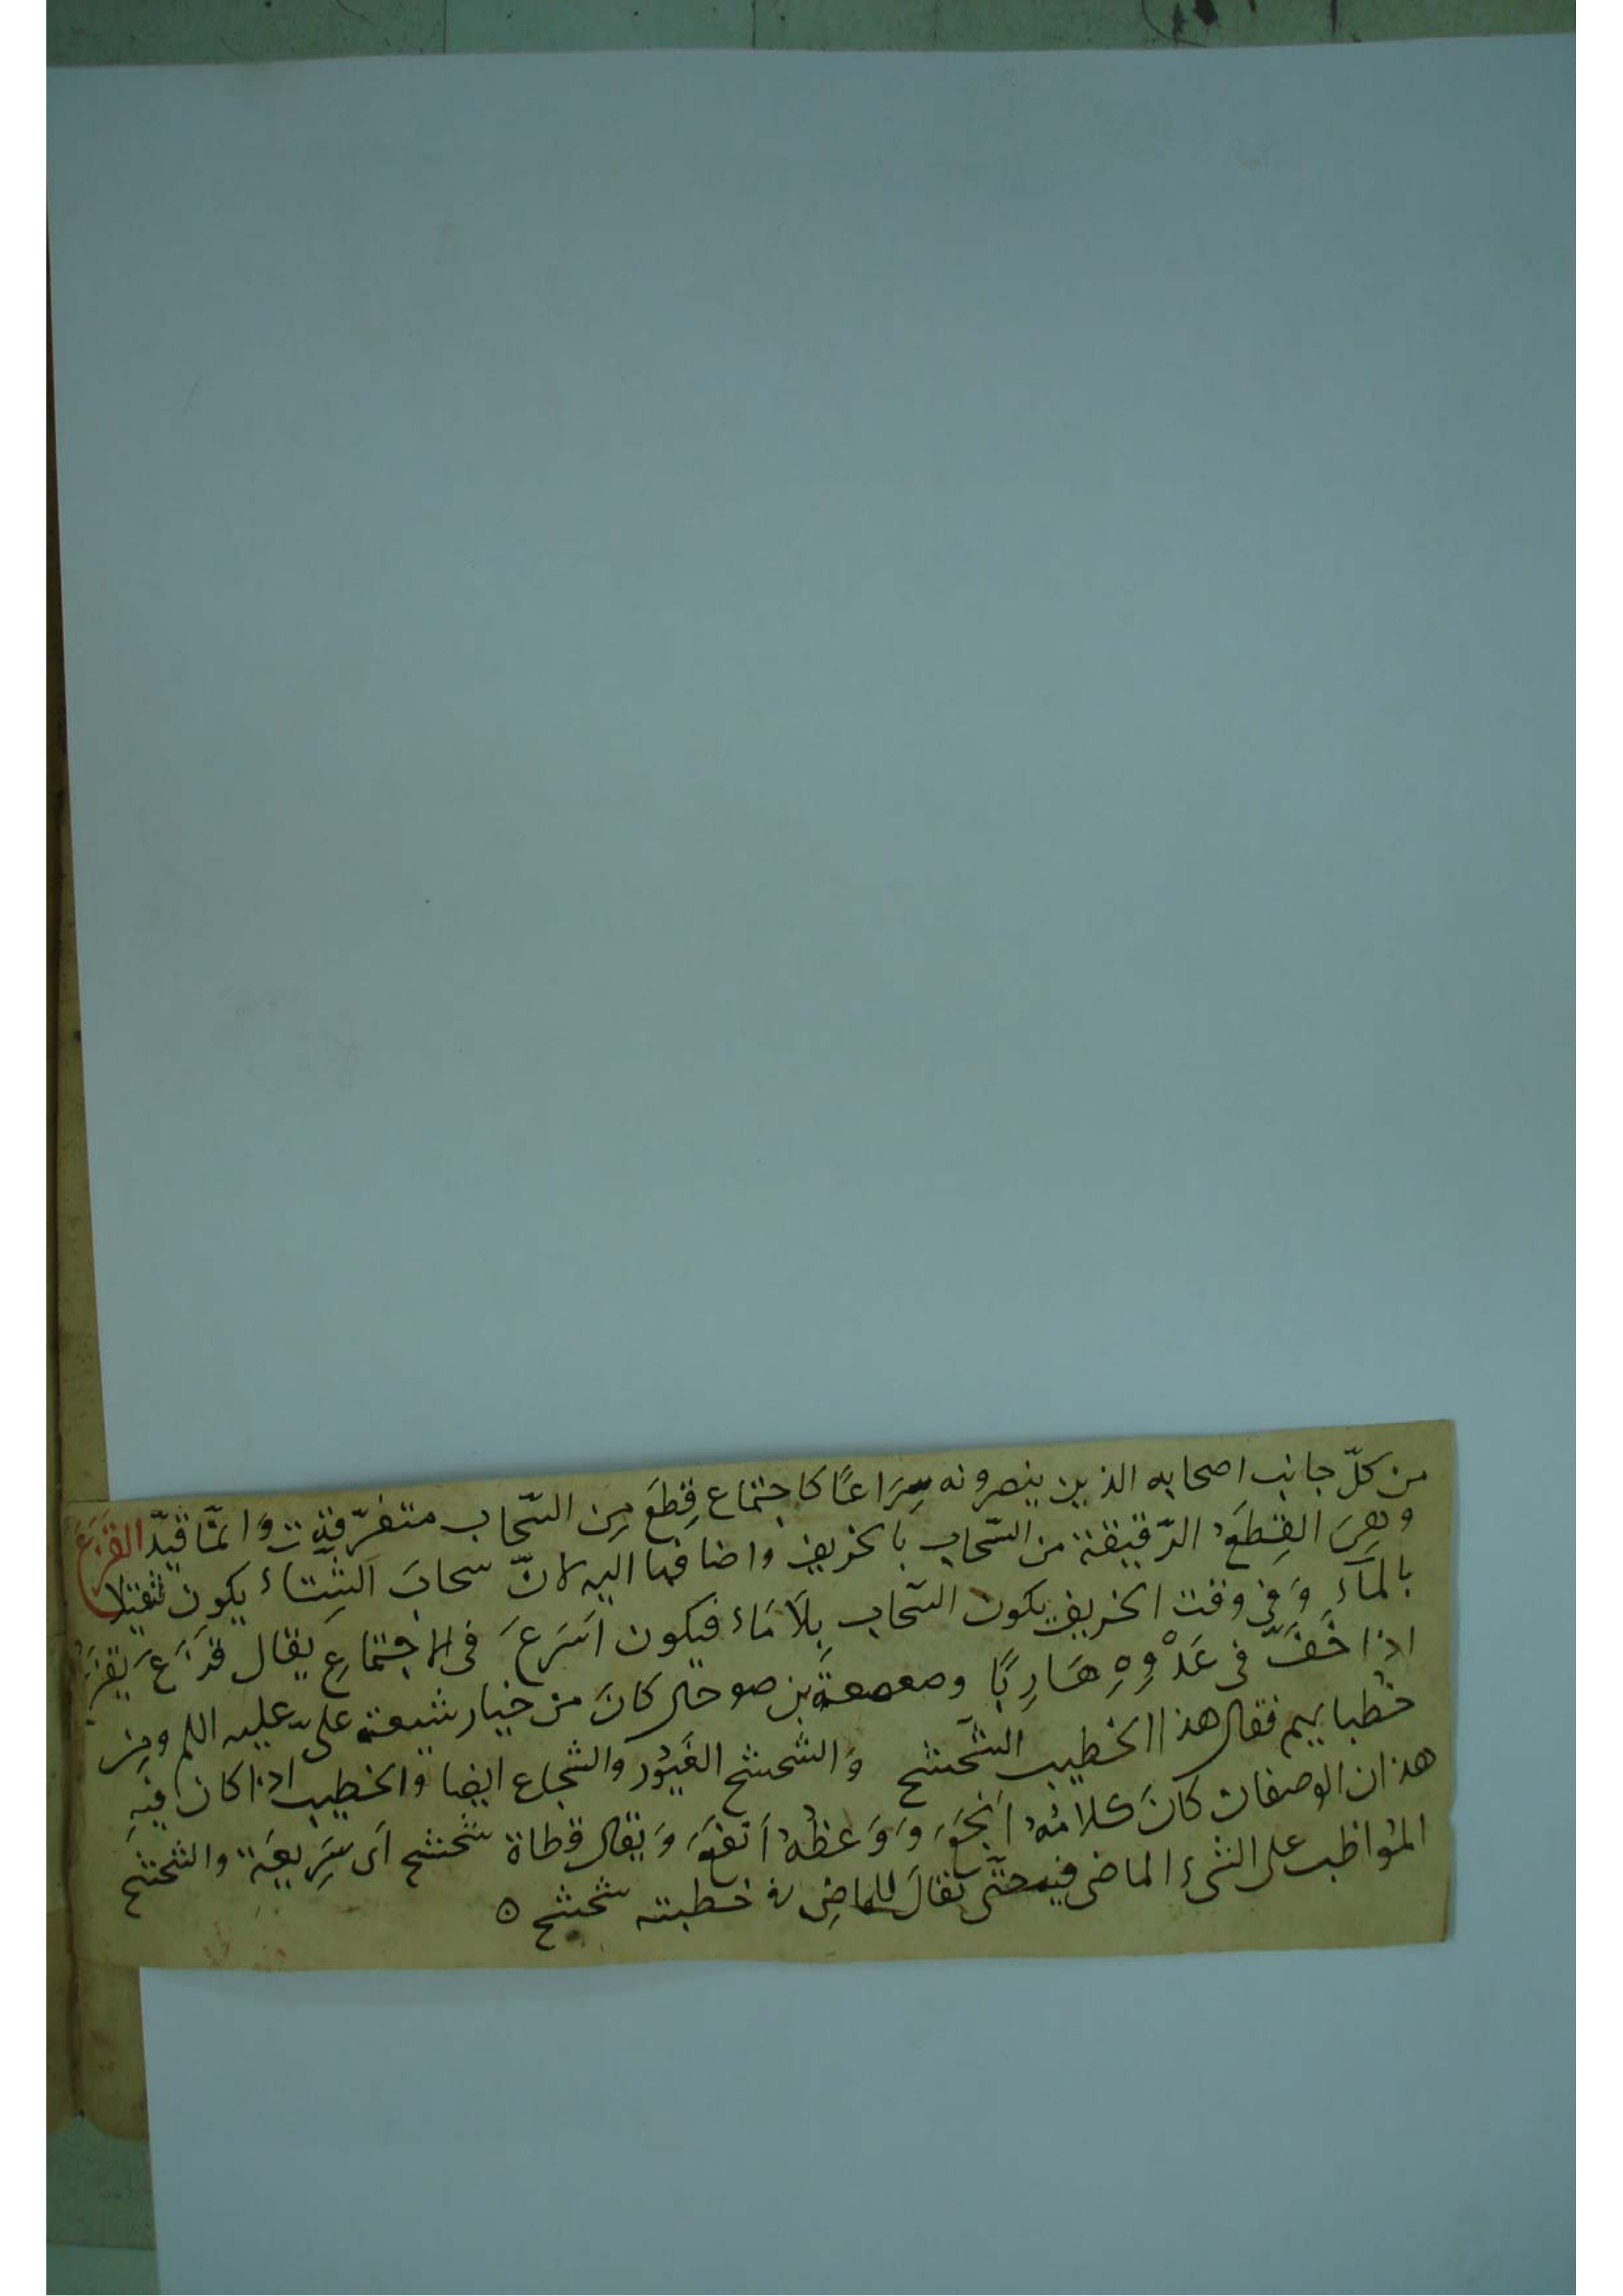 من كلّ جانب اصحابه الذين ينصرونه سِرَاعًا كاجتماع قِطَعٍ مِن السّحاب متفرّقة وَانّما قيّد القَزَعَ
وهِىَ القِطَعُ الرّقيقة من السّحاب بالخريف واضافها اليه لانّ سحابَ الشِّتاء يكون ثقيلا
بالمآءِ وَفى وقت الخريف يكون السّحاب بِلَا مَاء فيكون اَسرَعَ فى الاجتماعِ يقال قَزَعَ يَقزَعُ
اذا خَفَّ فى عَدْوِهِ هَارِبًا وصعصعةُ بن صوحان كانَ من خيار شيعة علىّ عليه السلم ومن
خطبايهم فقال هذا الخطيب الشّحشح وَالشّحشح الغَيُور والشجاع ايضا والخطيب اذا كان فيه
هذان الوصفان كانَ كلامُهُ اَنجَعَ وَوَعظُهُ اَنفَعَ وَيقال قطاة شحشح اَى سَرِيعَة والشحشح
المُواظب على الشىء الماضى فيه حتّى يقالَ للماضِى فى خطبته شحشح ه